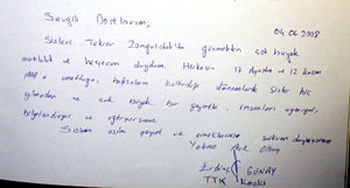 Sevgili Dostlarım;
04.06.2008
Sizleri Tekrar Zonguldak'ta görmekten çok büyük
mutluluk ve heyecan duydum. Herkesin 17 Ağustos ve 12 Kasım
unuttuğu, hafızaların dönemlerde Sizler hiç
yılmadan ve çok büyük bir insanları uyarıyor,
bilgilendiriyor ve
Sizlerin özlem gayret ve şükran duyuyorum
Yolunuz Açık Olsun
Erdinç GÜNAY
TTK